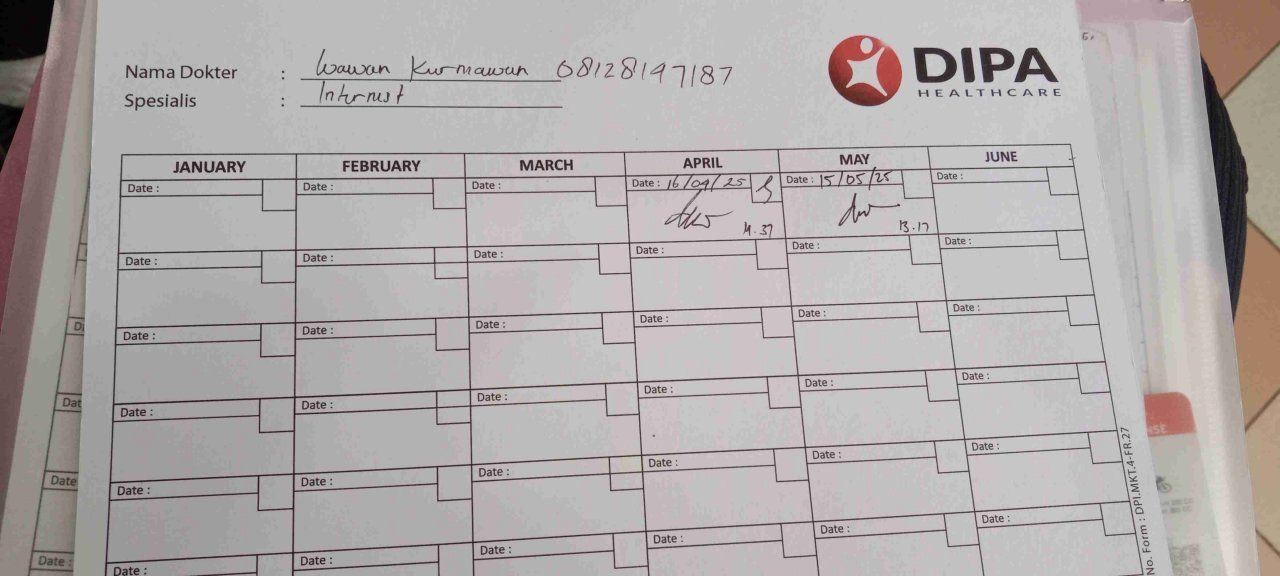 DIPA
HEALTHCARE
Nama Dokter : Wawan Kurniawan 08128197187
Spesialis : Internist
JANUARY FEBRUARY MARCH APRIL MAY JUNE
Date : Date : Date : Date : 16/04/25 Date : 15/05/25 Date :
13.17
Date : Date : Date : Date : Date : Date :
Date : Date : Date : Date : Date : Date :
Date : Date : Date : Date : Date : Date :
Date : Date : Date : Date : Date : Date :
Date : Date : Date : Date : Date : Date :
No. Form : DPI.MKT.4-FR.27
Date :
Date :